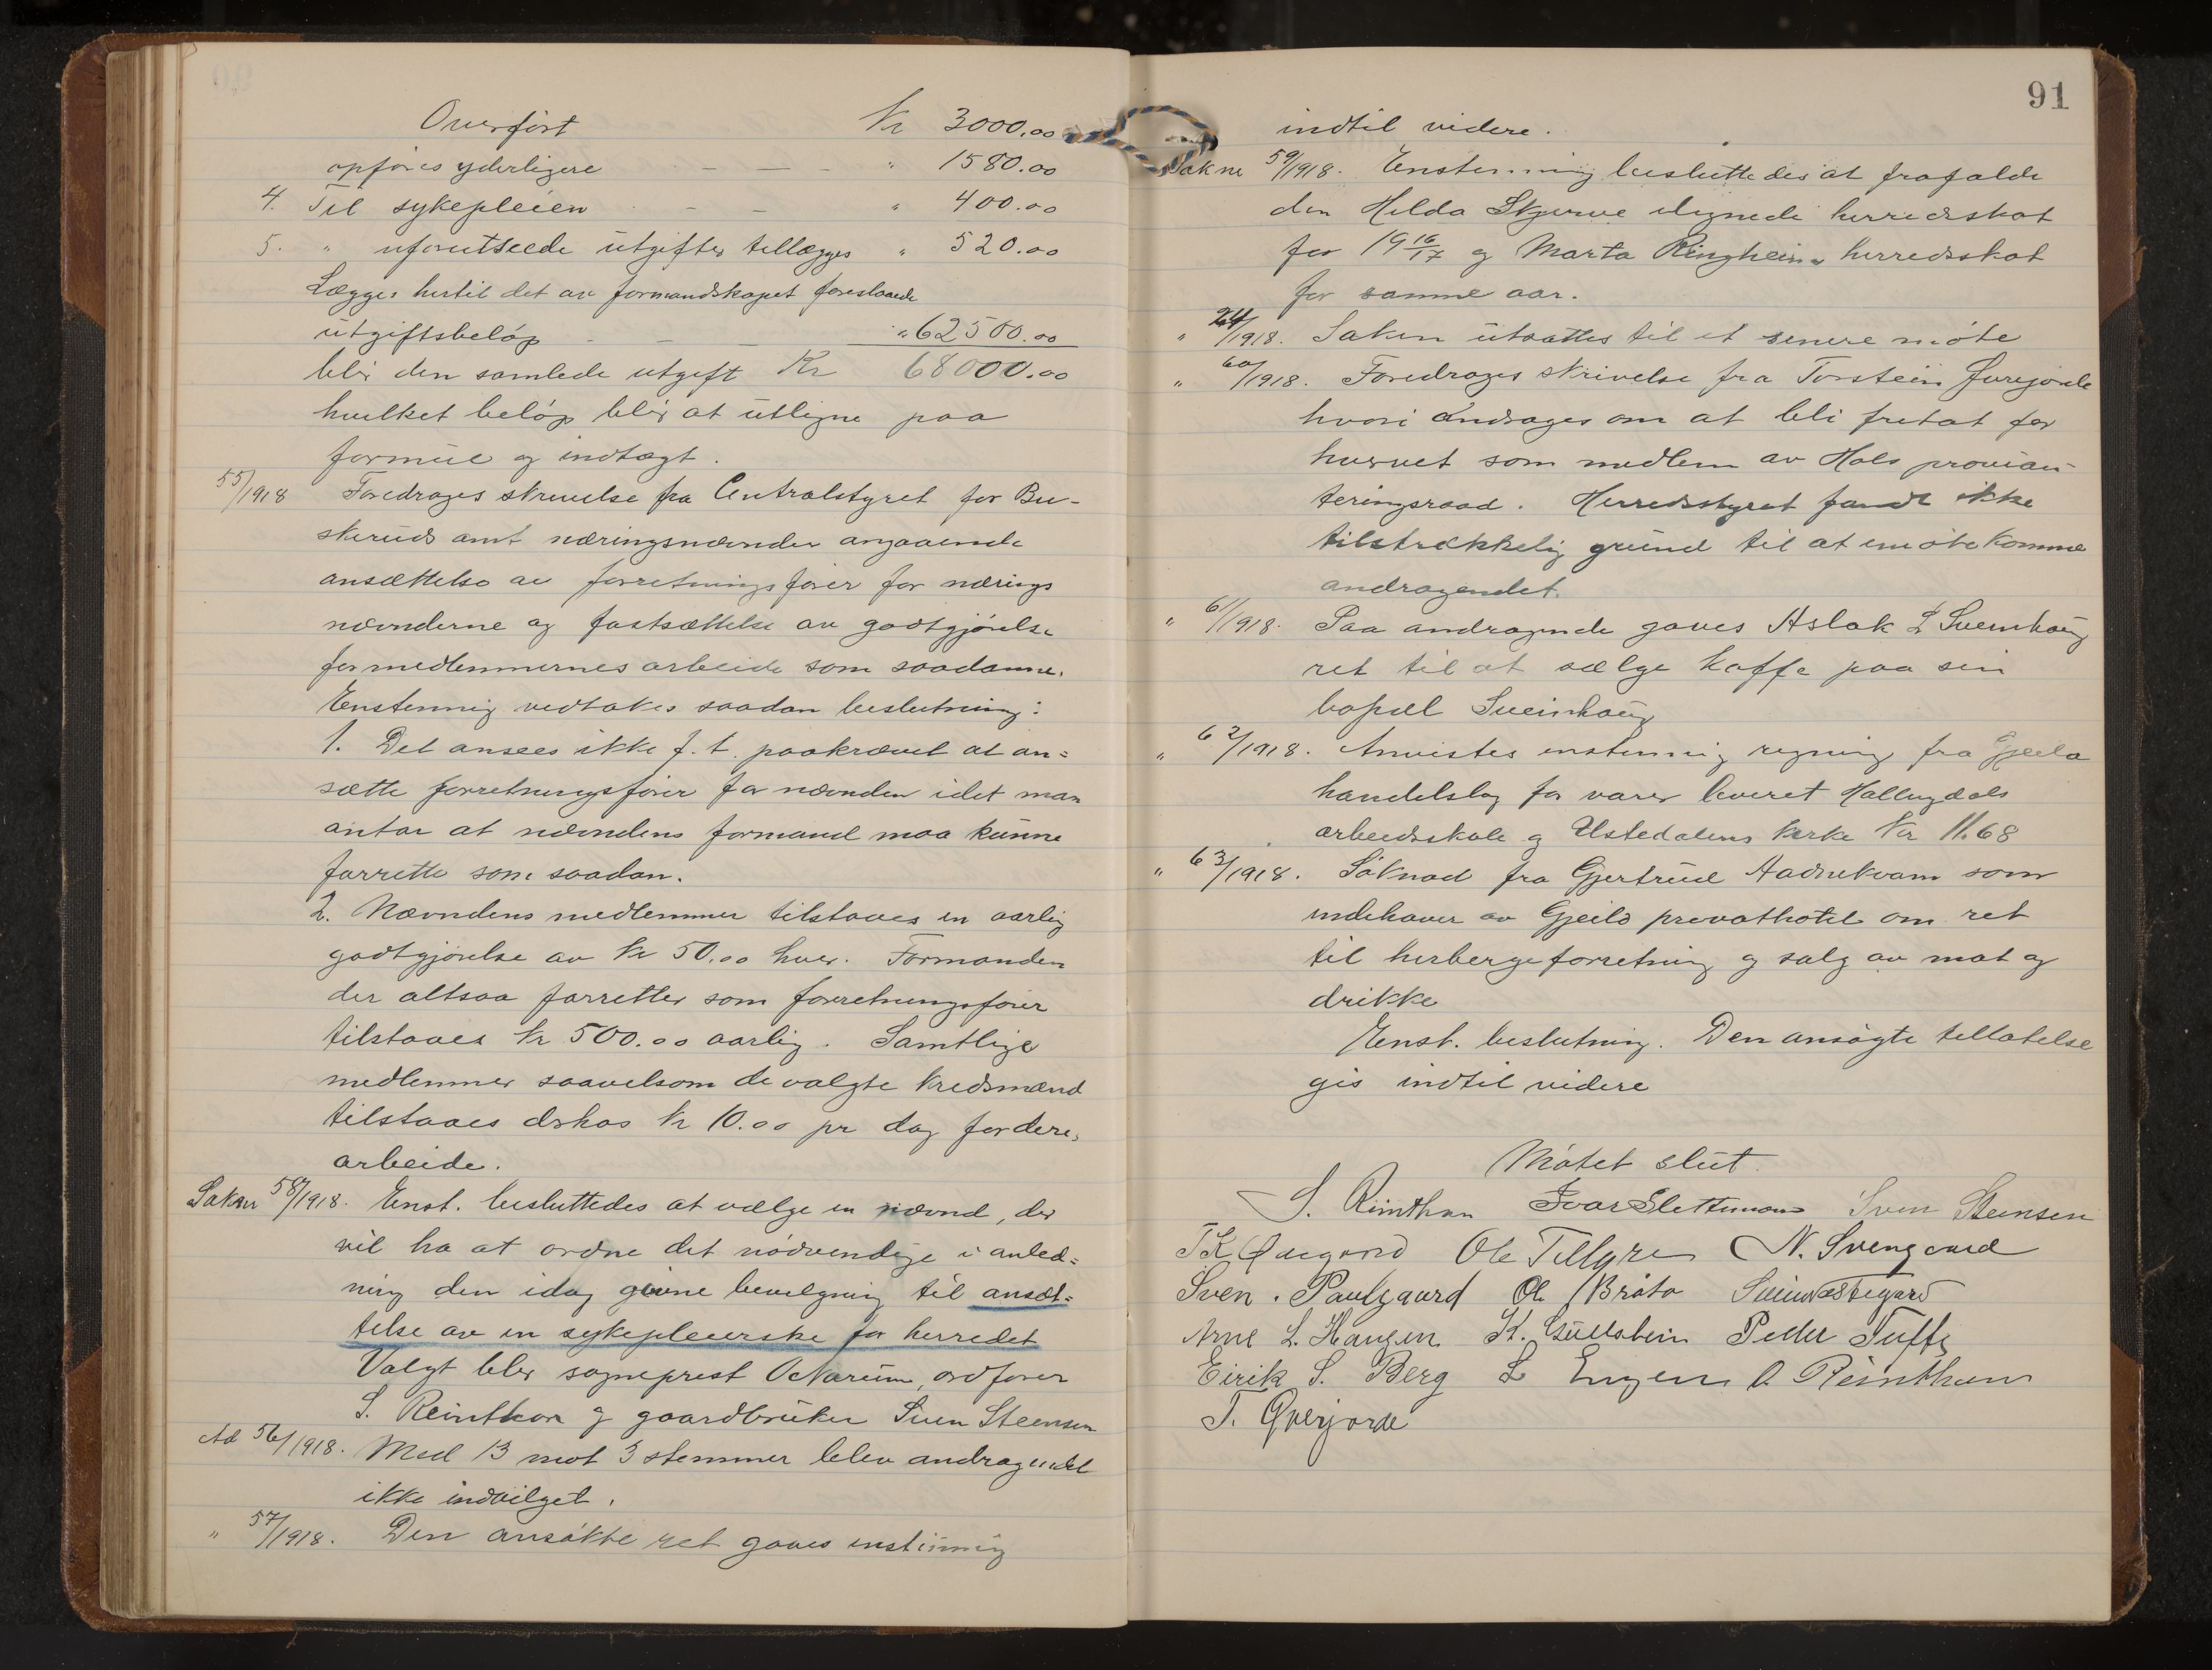 Overført Kr 3000.00
opføres yderligere - - - " 1580.00
4. Til sykepleien - - " 400.00
5. " uforutseede utgifter tillægges " 520.00
Lægges hertil det av formandskapet foreslaaede
utgiftsbeløp - - - " 62500.00
blir den samlede utgift Kr 68000.00
hvilket beløp blir at utligne paa
formue og indtægt.
55/1918 Foredroges skrivelse fra Centralstyret for Bu-
skeruds amt næringsnævnder angaaende
ansættelse av forretningsfører for nærings
nævnderne og fastsættelse av godtgjørelse
for medlemmernes arbeide som saadanne.
Enstemmig vedtokes saadan beslutning:
1. Det ansees ikke f. t. paakrævet at an=
sætte forretningsfører for nævnden idet man
antar at nævndens formand maa kunne
forrette som saadan.
2. Nævndens medlemmer tilstaaes en aarlig
godtgjørelse av Kr 50.00 hver. Formanden
der altsaa forretter som forretningsfører
tilstaaes Kr 500.00 aarlig. Samtlige
medlemmer saavelsom de valgte kredsmænd
tilstaaes dshos Kr 10.00 pr dag for deres
arbeide.
Saknr 58/1918. Enst. besluttedes at vælge en nævnd, der
vil ha at ordne det nødvendige i anled=
ning den idag givne bevilgning til ansæt=
telse av en sykepleierske for herredet
Valgt blev sogneprest Octavium, ordfører
S. Reinthon og gaardbruker Sven Steensen
Ad 56/1918. Med 13 mot 3 stemmer blev andragendet
ikke indvilget.
" 57/1918. Den ansøkte ret gaves enstemmig
91
indtil videre.
Sakne 59/1918. Enstemmig besluttedes at frafalde
den Hilda Skjerve ilignede herredsskat
for 19 16/17 og Marta Ringheims herredsskat
for samme aar.
" /1918. Saken utsattes til et senere møte
" 60/1918. Foredroges skrivelse fra Torstein
hvori andrages om at bli fritat for
hvervet som medlem av Hols provian-
teringsraad. Herredsstyret fandt ikke
tilstrækkelig grund til at imøtekomme
andragendet.
" 61/1918. Paa andragende gaves Aslak L Sveinhaug
ret til at sælge kaffe paa sin
bopæl Sveinhaug
" 62/1918. Anvistes enstemmig regning fra Gjeilo
handelslag for varer leveret Hallingdals
arbeidsskole og Ustedalens kirke Kr 11.68
" 63/1918. Søknad fra Gjertrud Aadnekvam som
indehaver av Gjeilo privathotel om ret
til herbergeforretning og salg av mat og
drikke
Enst. beslutning. Den ansøgte tillatelse
gis indtil videre
Møtet slut.
S. Reinthon Ivar Slettemoen Sven Steensen
T K Øvregard Ole Tellgren N. Svengaard
Sven . Paulgaard Ol. Bråta Svein Vestegard
Arne L. Haugen K. Gullstein Peder Tufte
Eirik S. Berg L Engen O. Reinthon
T. Qverjorde